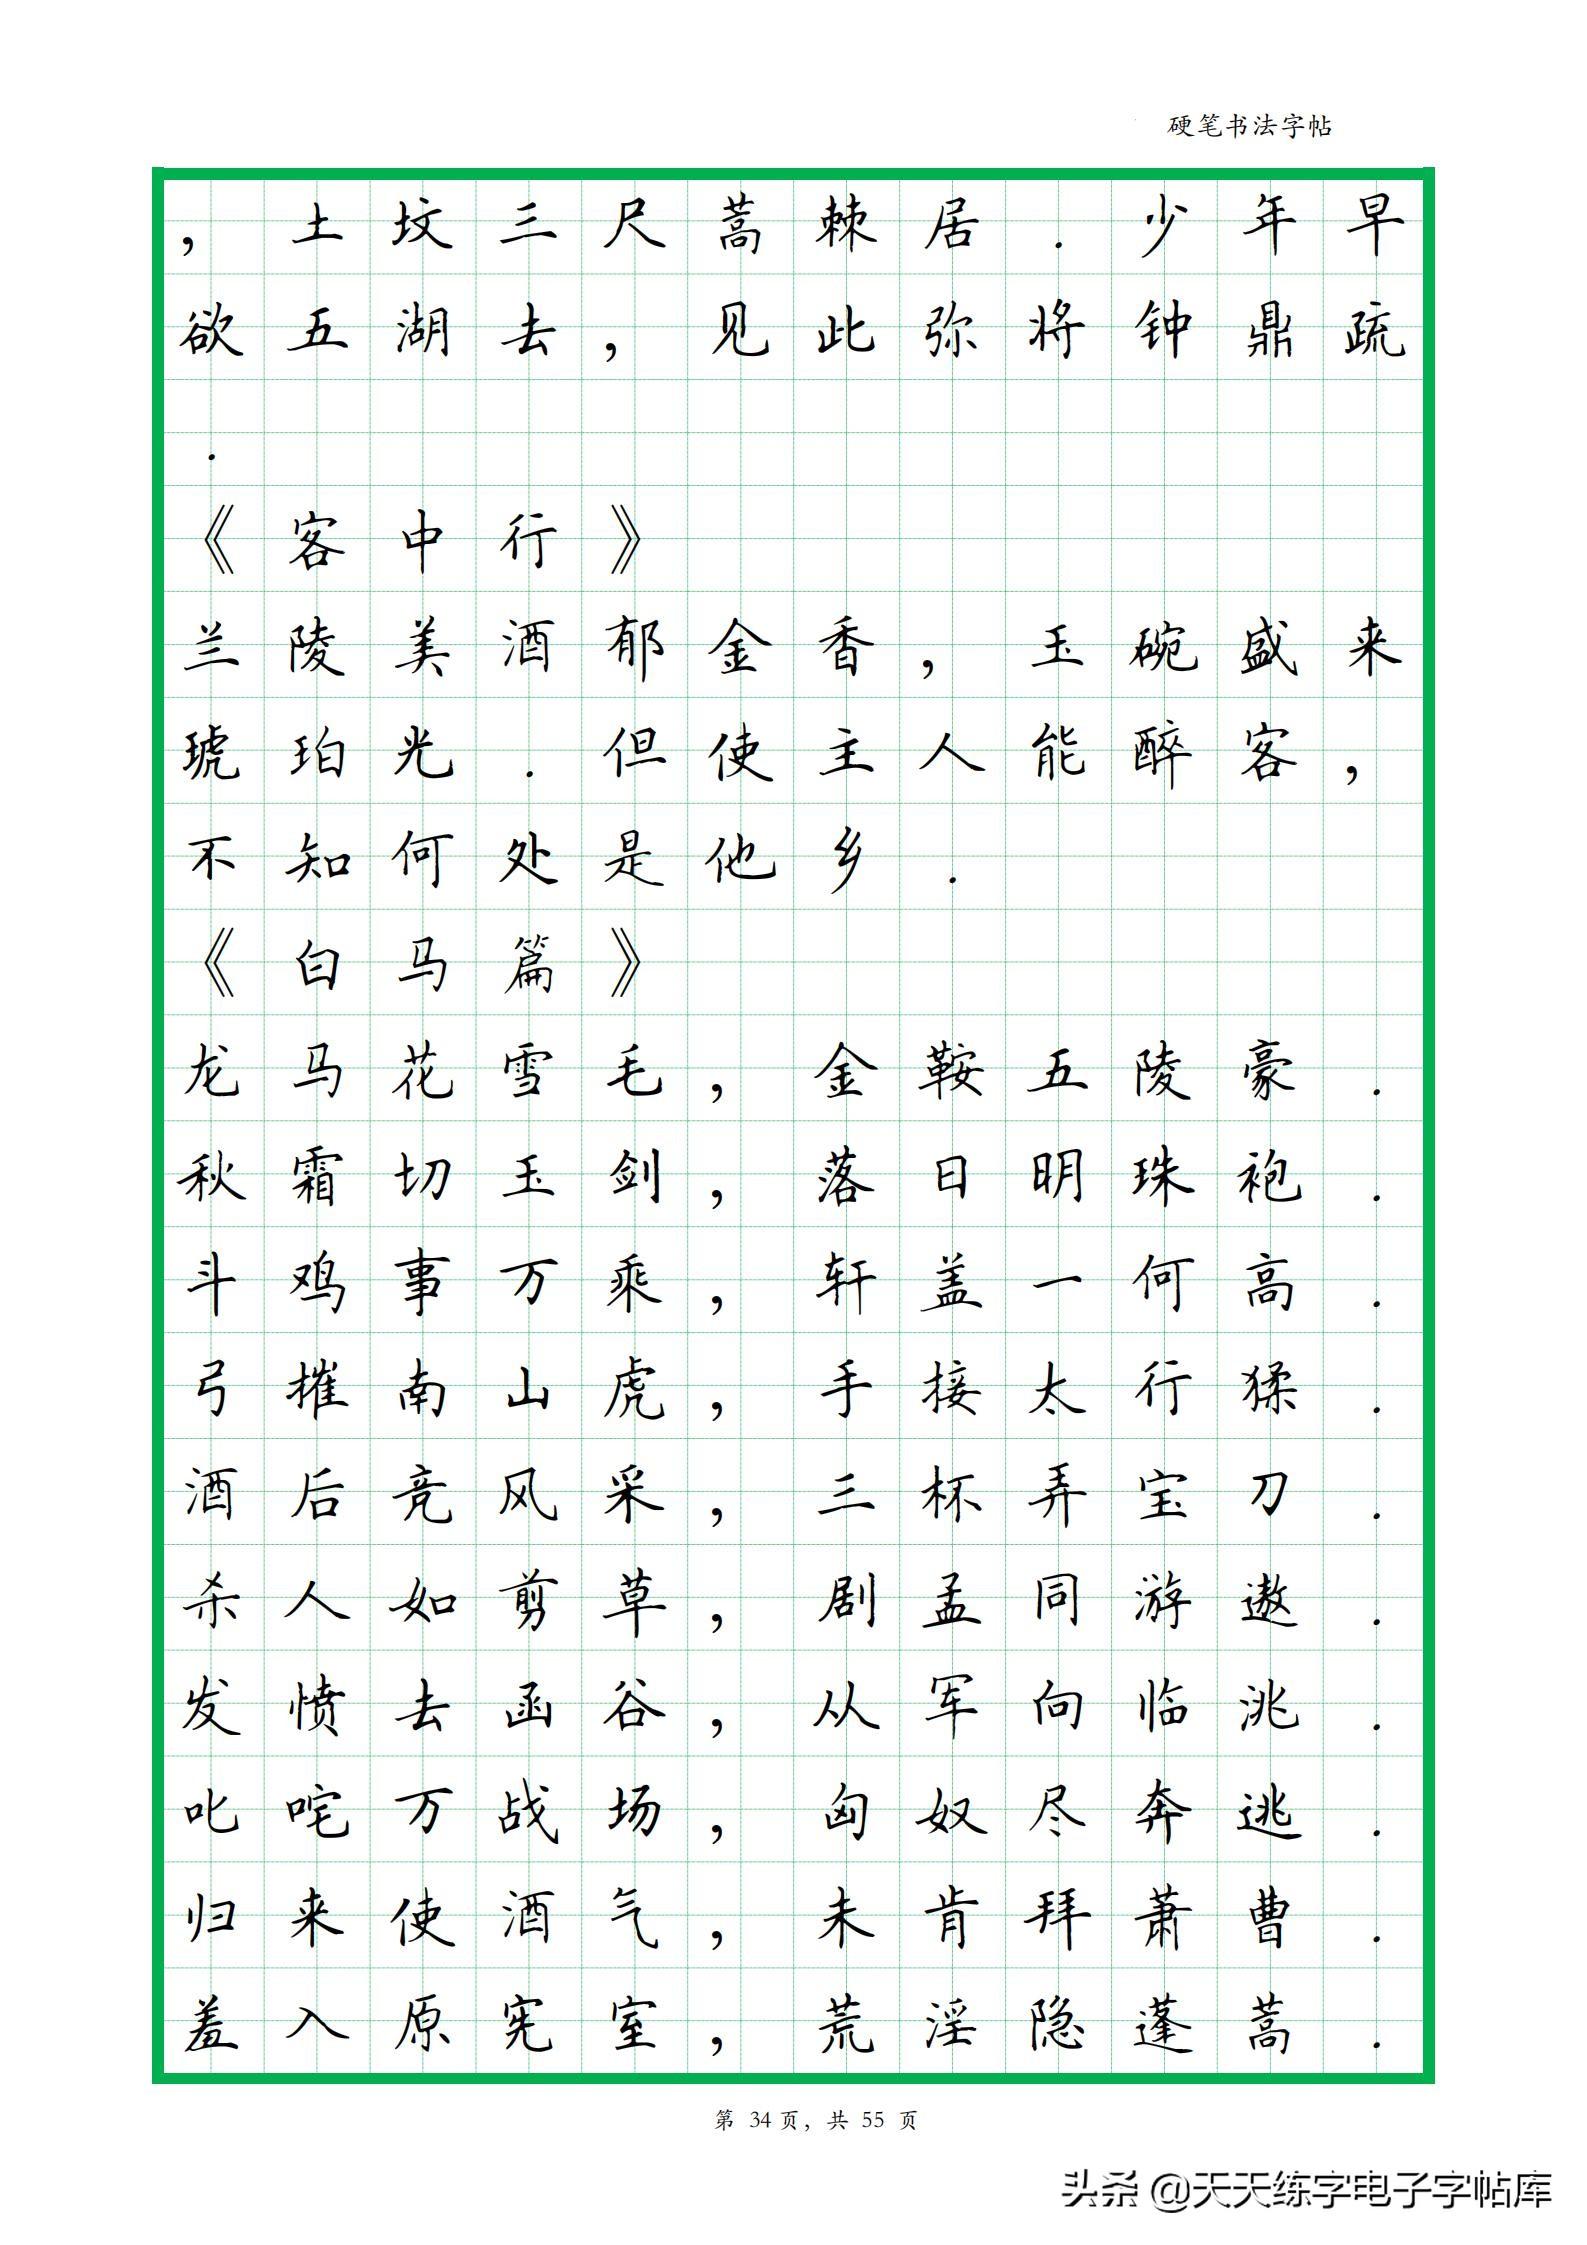 硬笔书法字帖
，土坟三尺蒿棘居．少年早
欲五湖去，见此弥将钟鼎疏
．
《客中行》
兰陵美酒郁金香，玉碗盛来
琥珀光．但使主人能醉客，
不知何处是他乡．
《白马篇》
龙马花雪毛，金鞍五陵豪．
秋霜切玉剑，落日明珠袍．
斗鸡事万乘，轩盖一何高．
弓摧南山虎，手接太行猱．
酒后竞风采，三杯弄宝刀．
杀人如剪草，剧孟同游遨．
发愤去函谷，从军向临洮．
叱咤万战场，匈奴尽奔逃．
归来使酒气，未肯拜萧曹．
羞入原宪室，荒淫隐蓬蒿．
第 34 页，共 55 页
头条 @天天练字电子字帖库